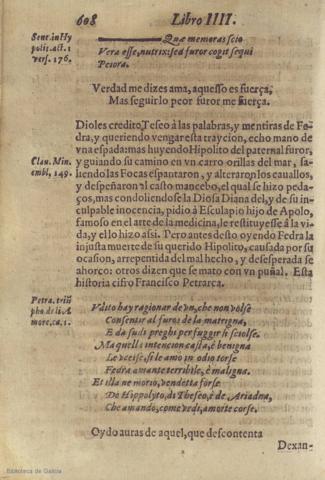 608 Libro IIII.
Sene. in Hy
polit. act. 1
vers. 176.
Quæ memoras scio
Vera esse, nutrix: sed furor cogit sequi
Peiora.
Verdad me dizes ama, aquesso es fuerça,
Mas seguirlo peor furor me fuerça.
Dioles credito Teseo à las palabras, y mentiras de Fe-
dra, y queriendo vengar esta traycion, echo mano de
vna espada: mas huyendo Hipolito del paternal furor,
Clau. Min.
embl, 149.
y guiando su camino en vn carro orillas del mar, sa-
liendo las Focas espantaron, y alteraron los cauallos,
y despeñaron al casto mancebo, el qual se hizo peda-
ços, mas condoliendose la Diosa Diana del, y de su in-
culpable inocencia, pidio à Esculapio hijo de Apolo,
famoso en el arte de la medicina, le restituyesse à la vi-
da, y el lo hizo assi. Pero antes desto oyendo Fedra la
injusta muerte de su querido Hipolito, causada por su
ocasion, arrepentida del mal hecho, y desesperada se
ahorco: otros dizen que se mato con vn puñal. Esta
historia cifro Francisco Petrarca.
Petra. triũ
pho. de li A
more, ca. 1.
Vdito hay ragionar de vn, che non volse
Consentir al furor de la matrigna,
E da suoi preghi per fuggir si sciolse.
Ma quella intencion casta, è benigna
Le vccise, si le amo in odio torse
Fedra amante terribile, è maligna.
Et illa ne morio, vendetta forse
De Hippolyto, di Theseo, è de Ariadna,
Che amando, come vedi, a morte corse.
Oydo auras de aquel, que descontenta
Dexan-
Biblioteca de Galicia